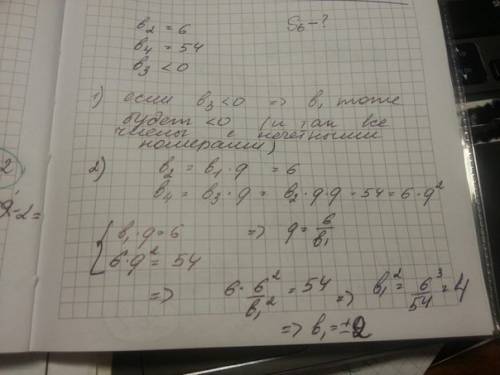 b₂ = 6 S₆ - ?
b₄ = 54
b₃ < 0
1) если b₃<0 => b₁ тоже
будет <0 (и так все
члены с нечетными
номерами)
2) b₂ = b₁ · q = 6
b₄ = b₃ · q = b₂ · q · q = 54 = 6 · q²
{ b₁ · q = 6 => q = 6/b₁
6 · q² = 54
=> 6 · 6²/b₁² = 54 => b₁² = 6³/54 = 4
=> b₁ = ±2